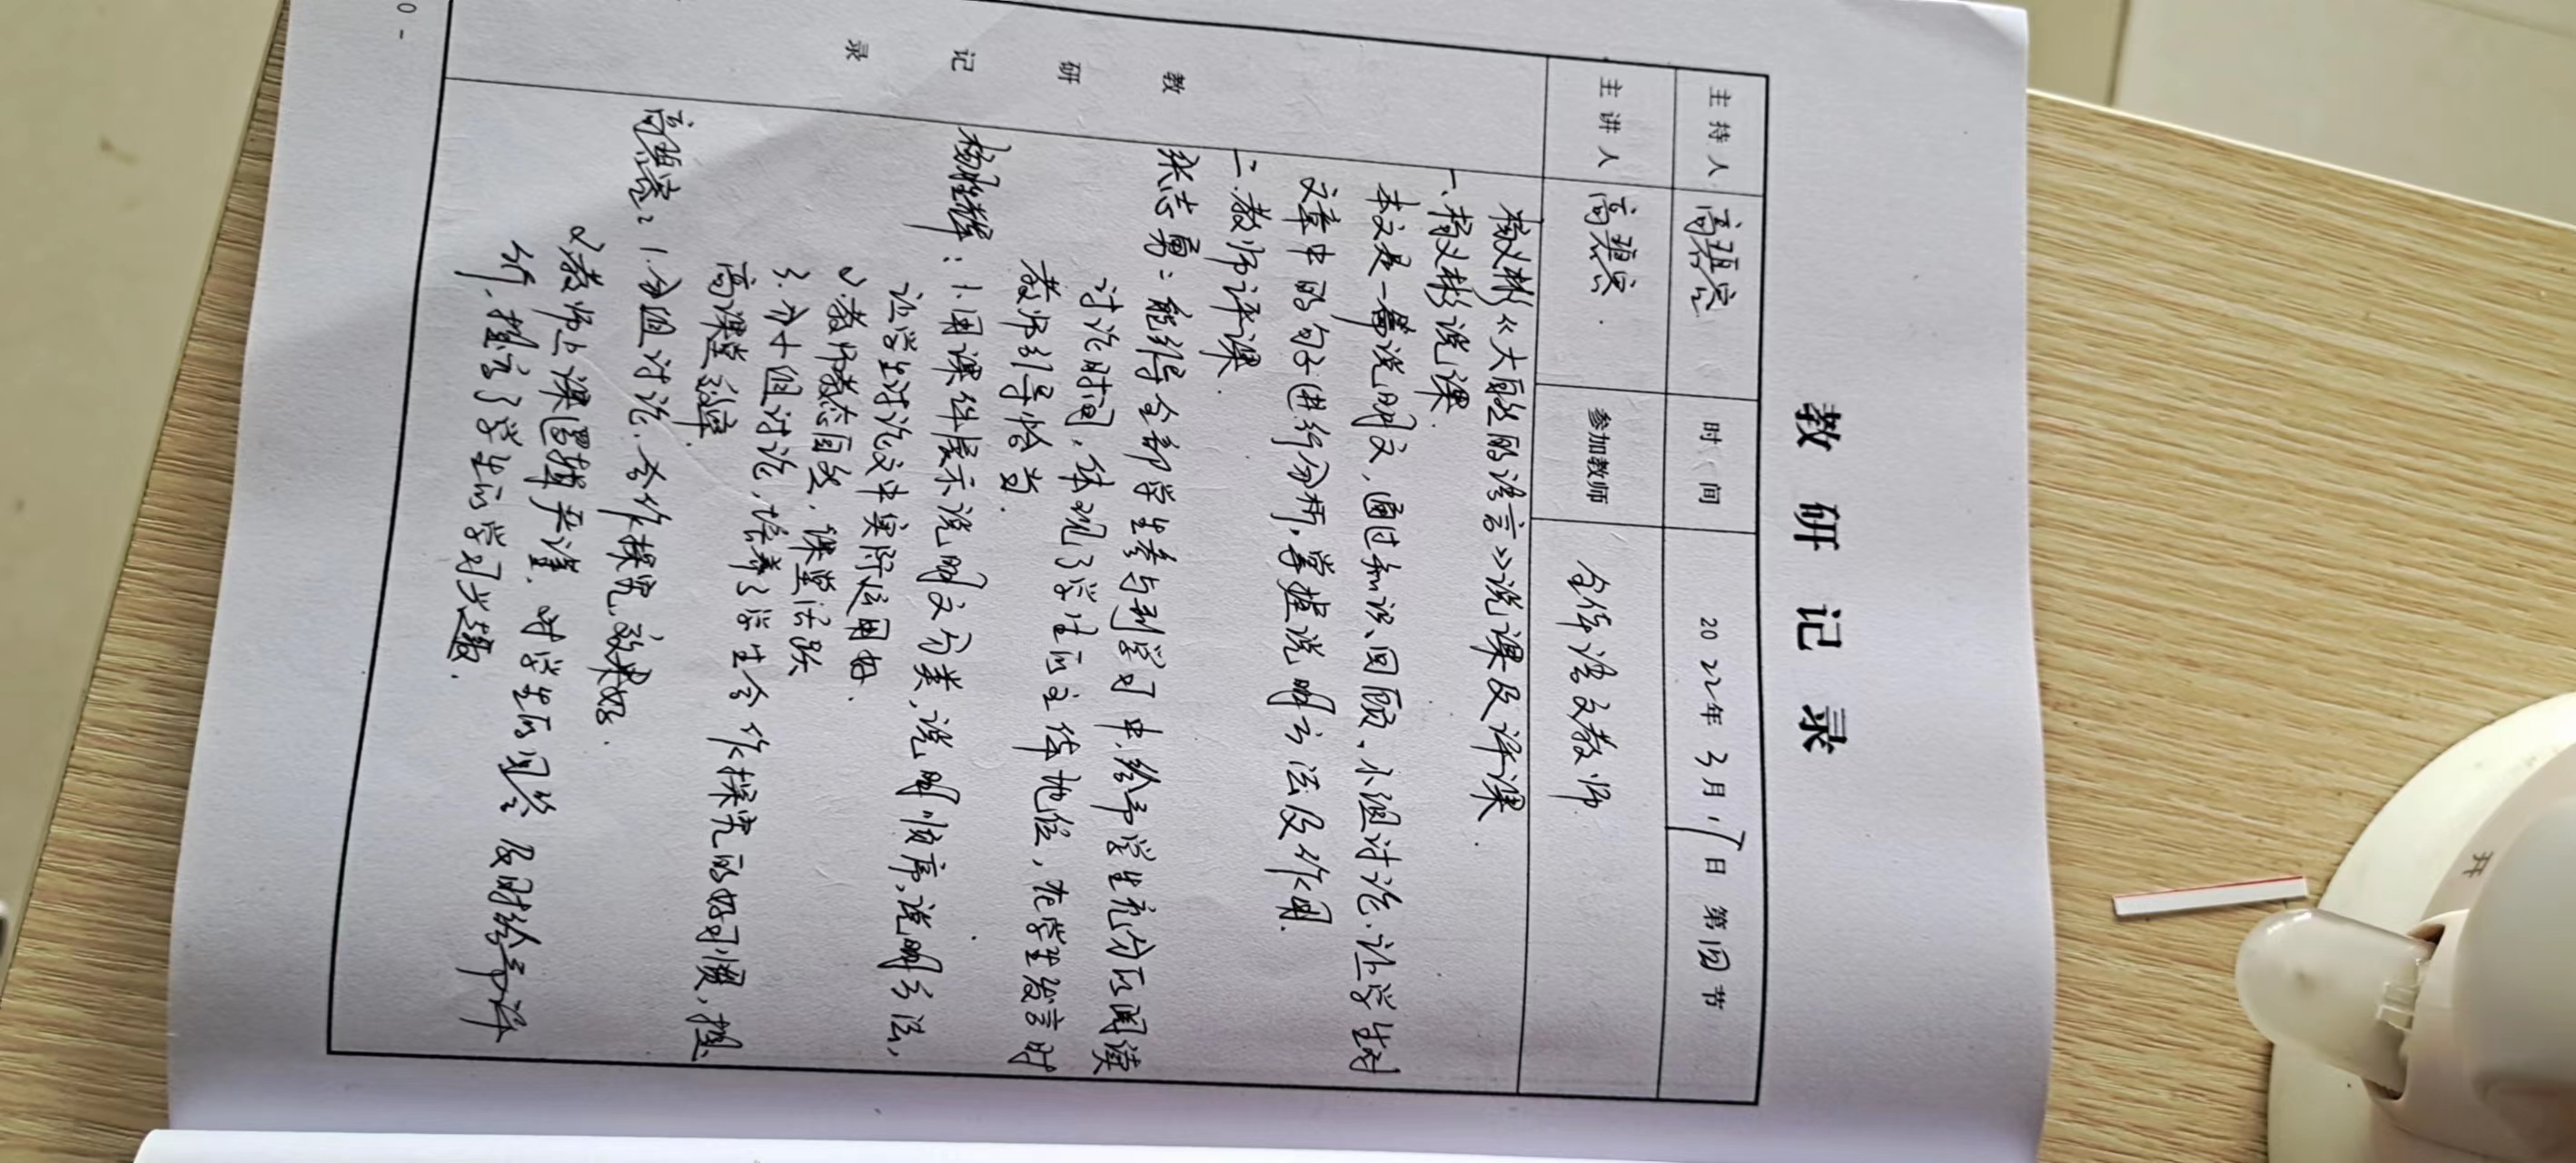 教研记录
主持人 高碧亮 时间 2022年3月17日 第四节
主讲人 高碧亮 参加教师 全体语文教师
教研记录
杨义彬《大自然的语言》说课及评课
一.杨义彬说课.
本文是一篇说明文,通过知识回顾、小组讨论,让学生对
文章中的句子进行分析,掌握说明方法及作用.
二.教师评课.
张志勇:能组织全部学生参与到学习中,给予学生充分的阅读
讨论时间,体现了学生的主体地位,在学生发言时
教师引导恰当.
杨胜辉:1.用课件展示说明文分类,说明顺序,说明方法,
让学生讨论文中实际应用好.
2.教师教态自然,课堂活跃
3.分小组讨论,培养了学生合作探究的好习惯,提
高课堂效率.
高碧亮:1.分组讨论,合作探究,效果好.
2.教师上课逻辑严谨,对学生的回答及时给予评
价,提高了学生的学习兴趣.